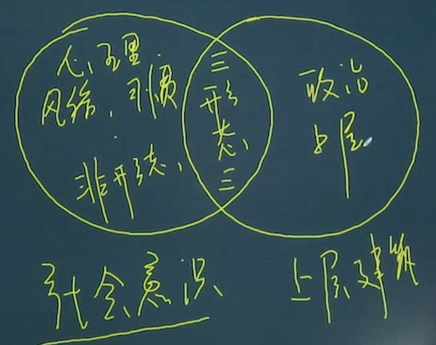 心理
风俗、习惯
非形态、
三
形
态
三
政治
上层
社会意识
上层建筑